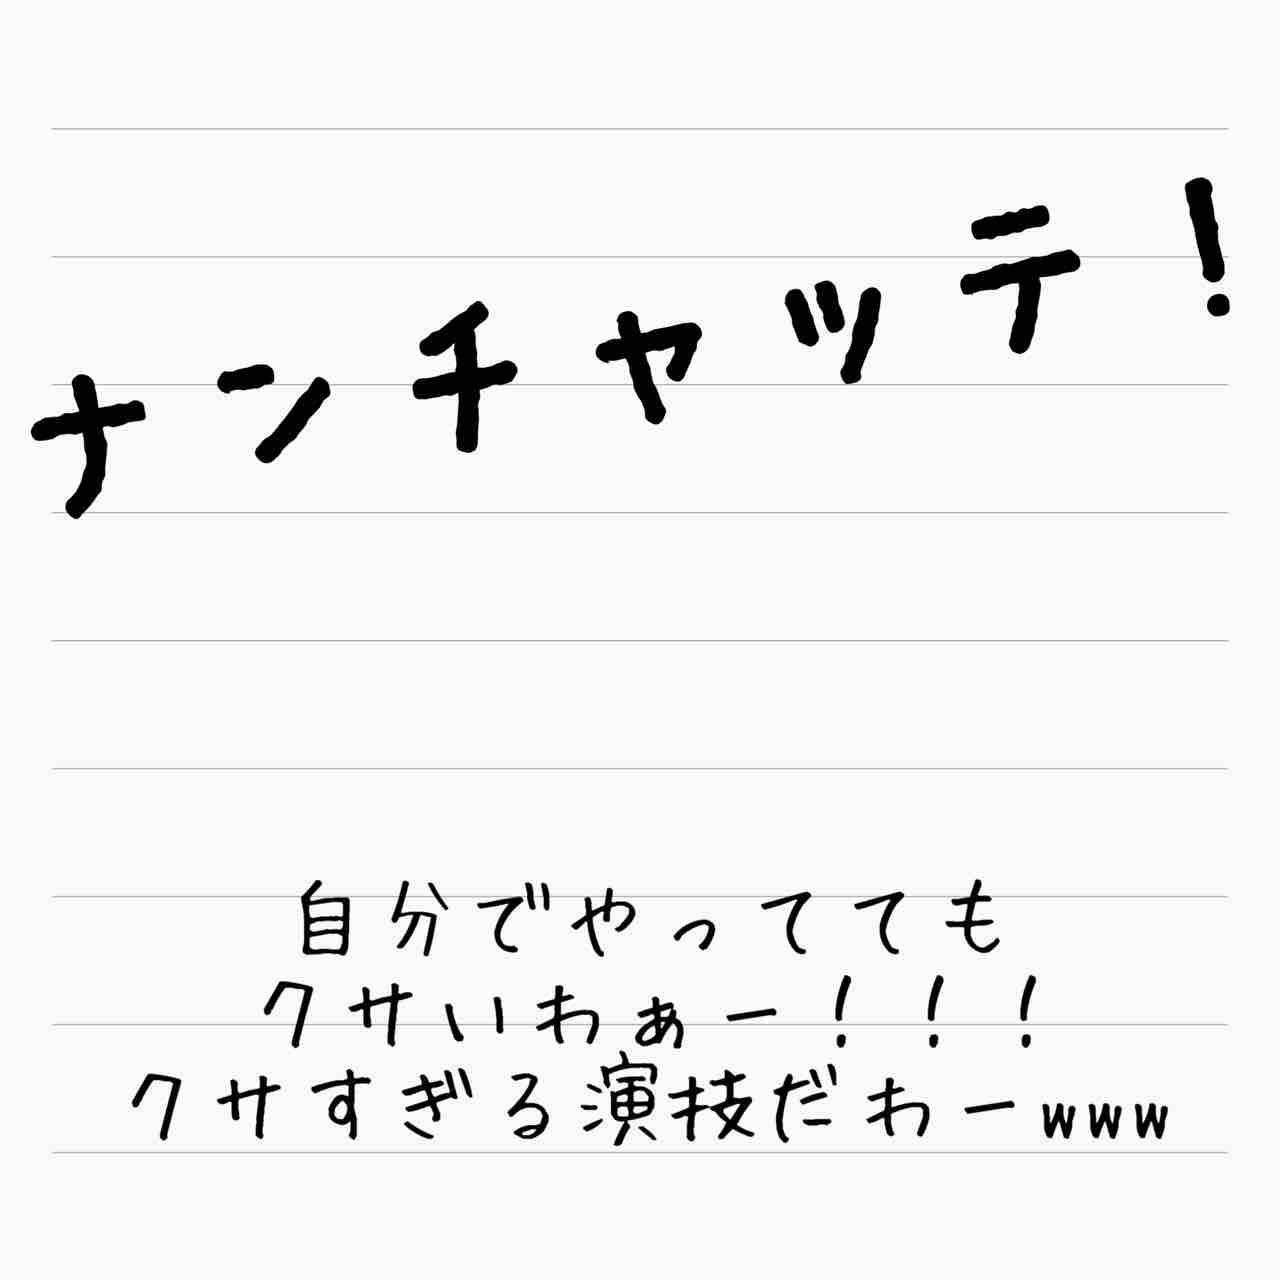 ナンチャッテ！
自分でやってても
クサいわぁー！！！
クサすぎる演技だわーwww